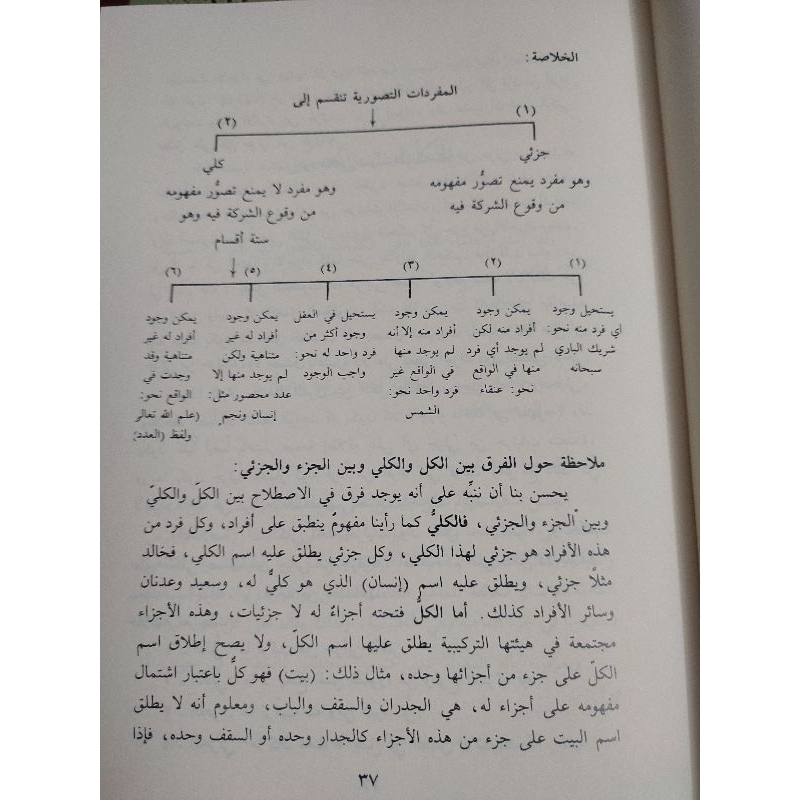 الخلاصة:
المفردات التصورية تنقسم إلى
(١) (٢)
جزئي
وهو مفرد يمنع تصوُّر مفهومه
من وقوع الشركة فيه
كلي
وهو مفرد لا يمنع تصوُّر مفهومه
من وقوع الشركة فيه وهو
ستة أقسام
(١) (٢) (٣) (٤) (٥) (٦)
يستحيل وجود
أي فرد منه نحو:
شريك الباري
سبحانه
يمكن وجود
أفراد منه لكن
لم يوجد أي فرد
منها في الواقع
نحو: عنقاء
يمكن وجود
أفراد منه إلا أنه
لم يوجد منها
في الواقع غير
فرد واحد نحو:
الشمس
يستحيل في العقل
وجود أكثر من
فرد واحد له نحو:
واجب الوجود
يمكن وجود
أفراد له غير
متناهية ولكن
لم يوجد منها إلا
عدد محصور مثل:
إنسان ونجم
يمكن وجود
أفراد له غير
متناهية وقد
وجدت في
الواقع نحو:
(علم الله تعالى
ولفظ (العدد)
ملاحظة حول الفرق بين الكل والكلي وبين الجزء والجزئي:
يحسن بنا أن ننبِّه على أنه يوجد فرق في الاصطلاح بين الكلّ والكليّ
وبين الجزء والجزئي، فالكليُّ كما رأينا مفهومٌ ينطبق على أفراد، وكل فرد من
هذه الأفراد هو جزئي لهذا الكلي، وكل جزئي يطلق عليه اسم الكلي، فخالد
مثلًا جزئي، ويطلق عليه اسم (إنسان) الذي هو كليٌّ له، وسعيد وعدنان
وسائر الأفراد كذلك. أما الكلُّ فتحته أجزاءٌ له لا جزئيات، وهذه الأجزاء
مجتمعة في هيئتها التركيبية يطلق عليها اسم الكلّ، ولا يصح إطلاق اسم
الكلّ على جزء من أجزائها وحده، مثال ذلك: (بيت) فهو كلٌّ باعتبار اشتمال
مفهومه على أجزاء له، هي الجدران والسقف والباب، ومعلوم أنه لا يطلق
اسم البيت على جزء من هذه الأجزاء كالجدار وحده أو السقف وحده، فإذا
٣٧